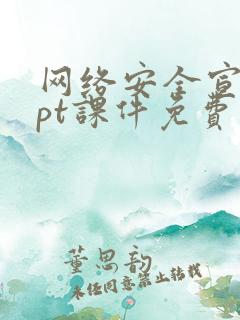 网络安全宣
pt課件免費
董思韵
未经同意禁止转载